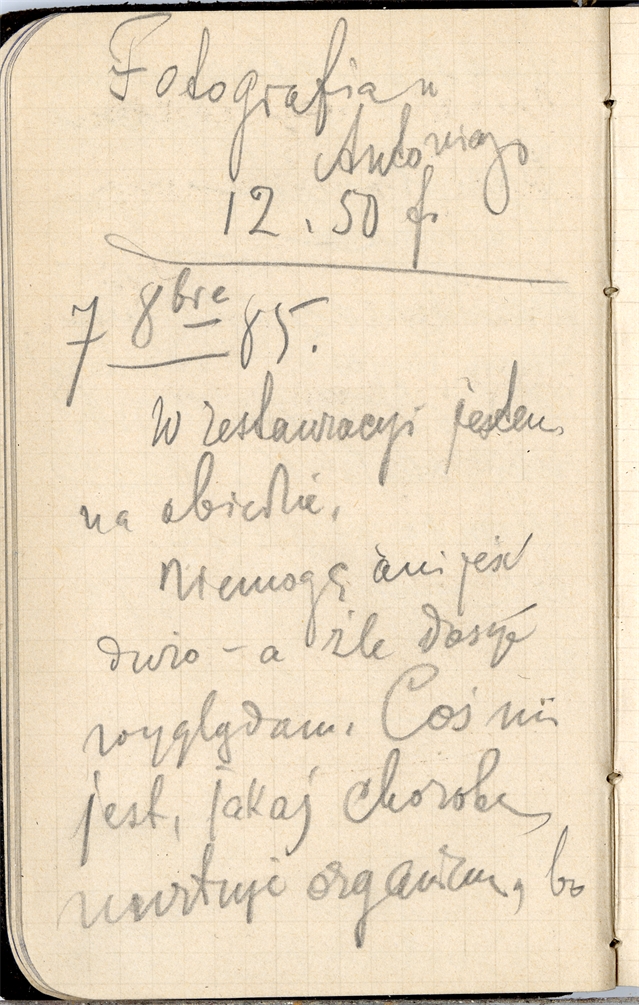 Fotografia u
Antoniego
12.50 f.
7 8bre 85.
W restauracyi jestem
na obiedzie.
Niemogę ani jeść
dużo – a źle dosyć
wyglądam. Coś mi
jest, jakaś choroba
nurtuje organizm, bo